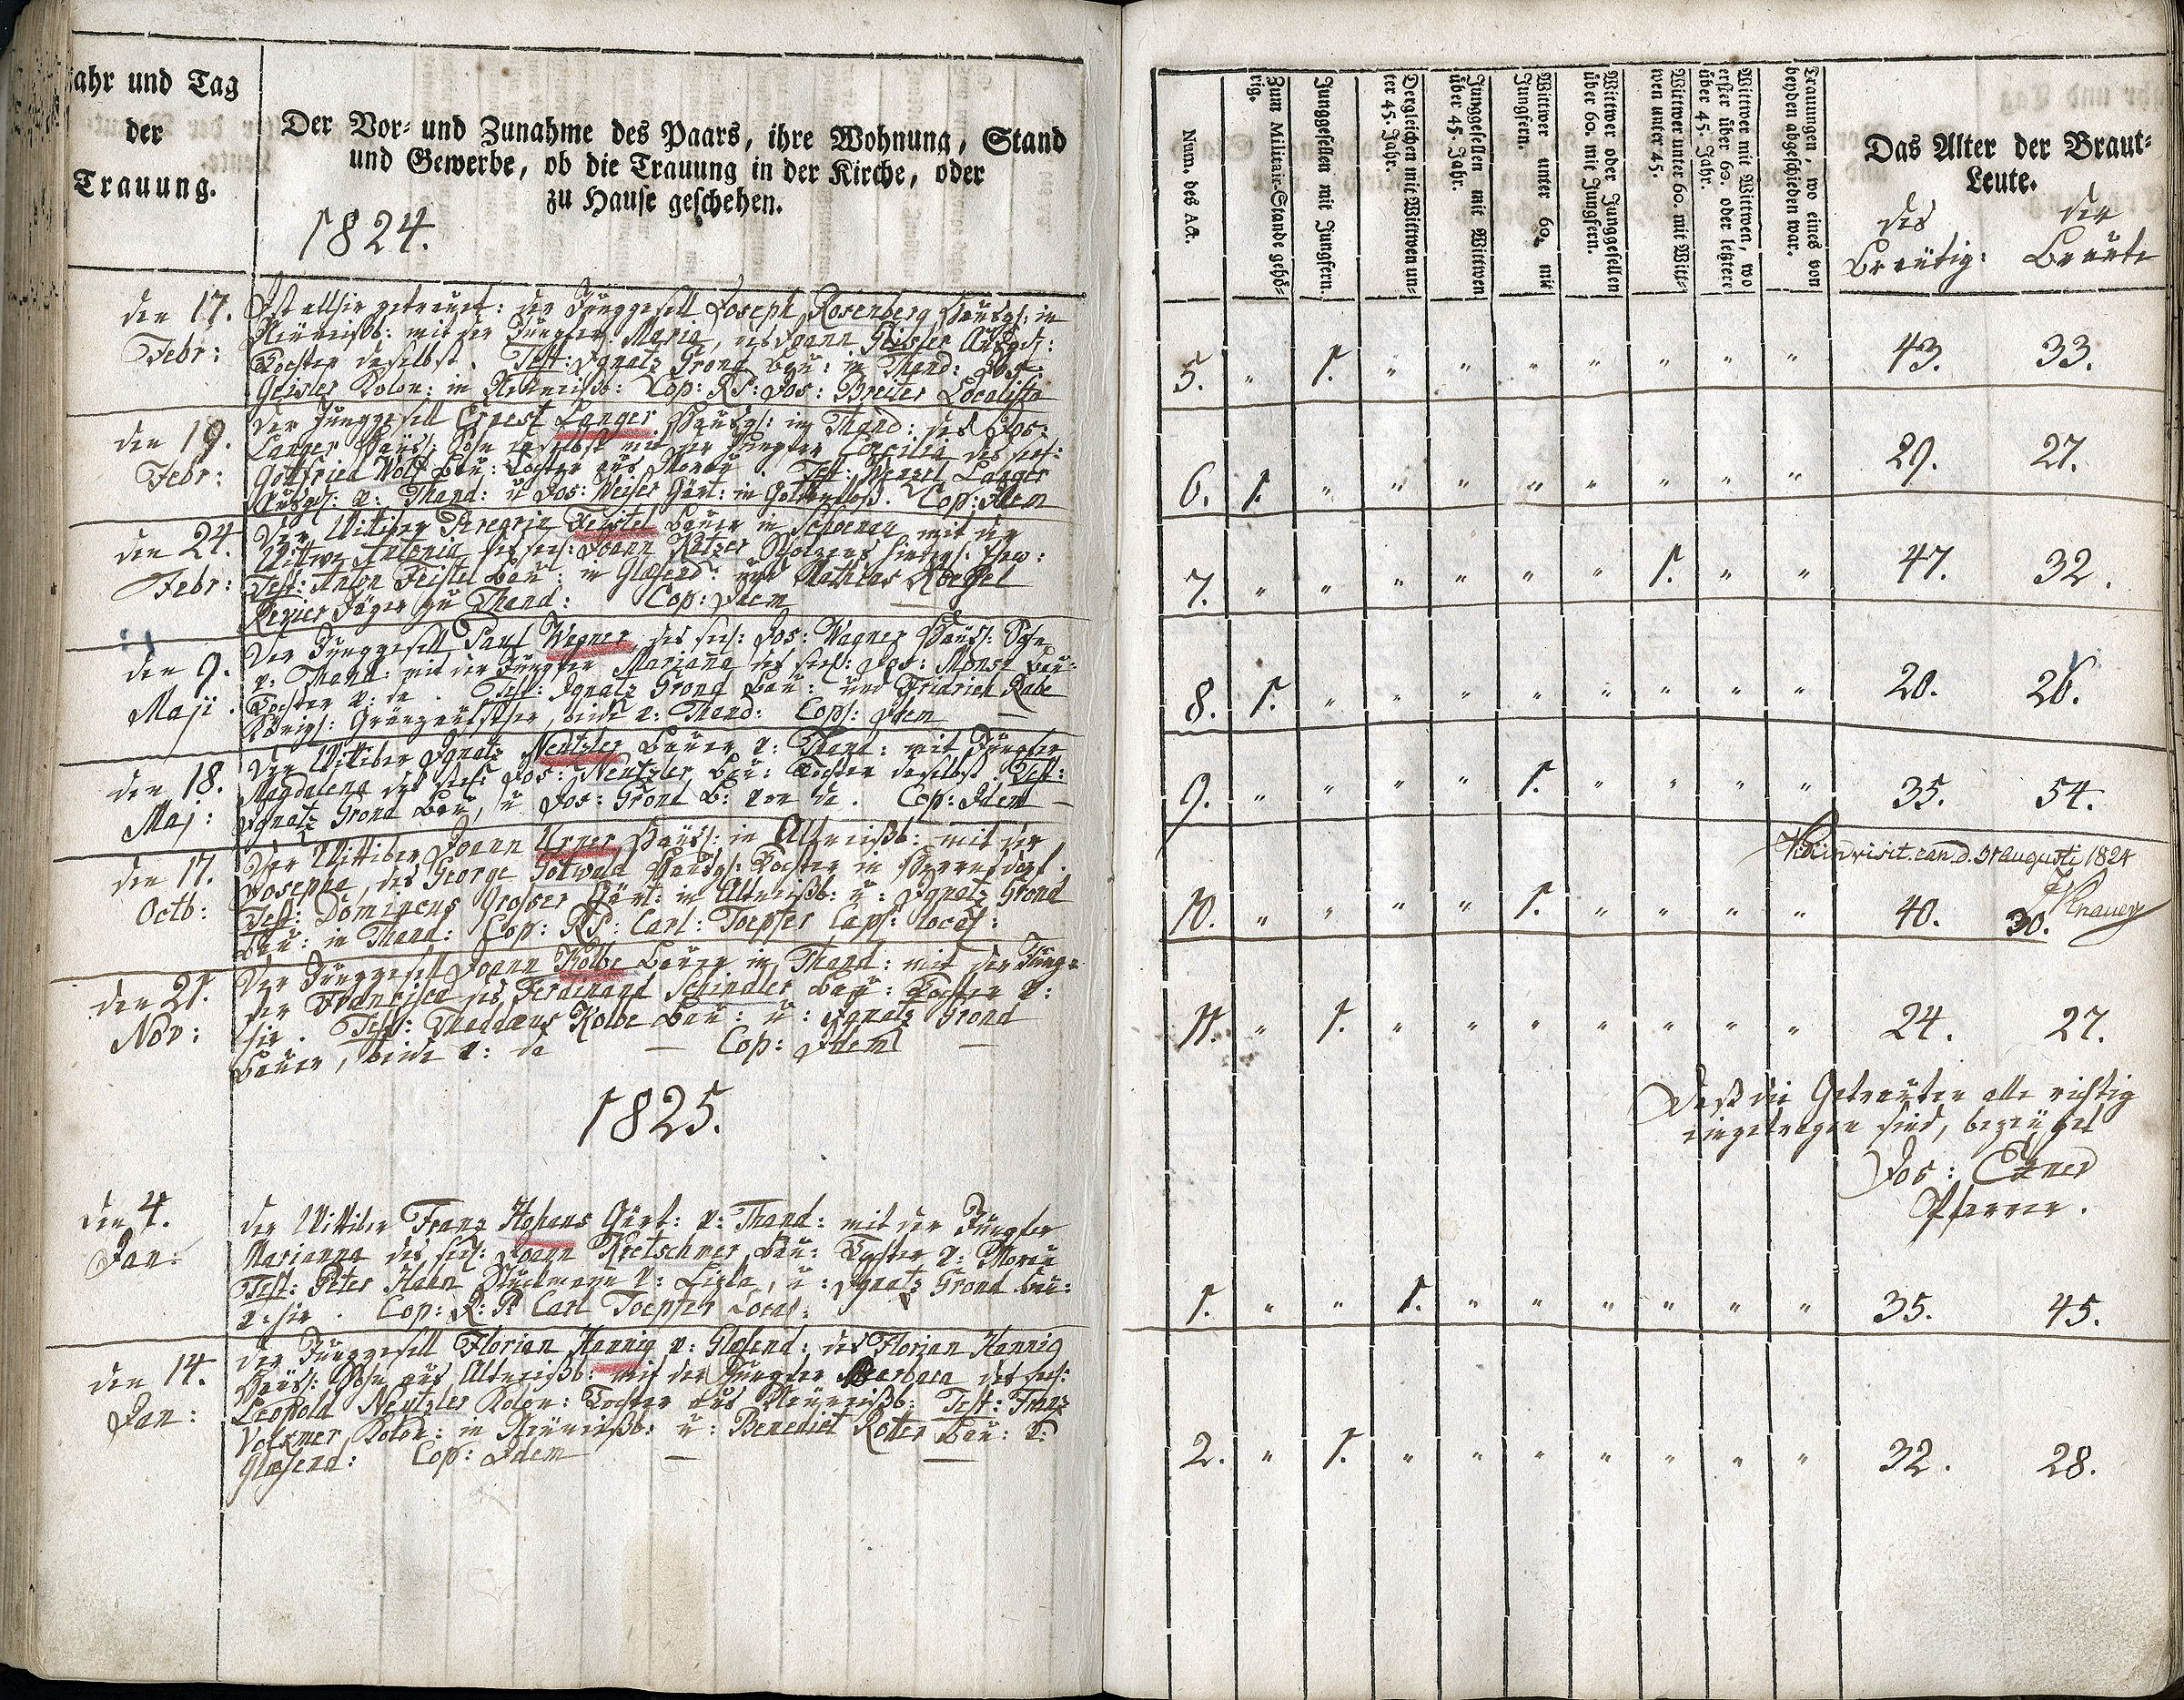 Jahr und Tag
der
Trauung.
Der Vor- und Zunahme des Paars, ihre Wohnung, Stand
und Gewerbe, ob die Trauung in der Kirche, oder
zu Hause geschehen.
1824.
den 17.
Febr:
Ist allhir getraut: der Junggesell Joseph Rosenberg Häusg: in
Neuweißb: mit der Jungfer Maria, des Joann Geisler
Tochter daselbst. Test: Ignatz Grond Bau: in Thand:
Geisler Kolon: in Cop: RP: Jos: Breiter Localista
den 19.
Febr:
Der Junggesell Ernest Langer im Thand: des Jos:
Langer Sohn daselbst mit der Jungfer Caecilia des seel:
Gottfried Wolf Bau: Tochter aus Morau. Test: Wenzel Langer
Thand: u Jos: Weiser Gärt: in Cop: Idem
den 24.
Febr:
Der Wittiber Peregrin Feistel Bauer in Schoenau mit der
Wittwe Antonia des seel: Joann Katzer
Test: Anton Feistel Bau: in Glasend: und Mathias
Revier Jäger zu Thand: Cop: Idem
den 9.
Maji.
Der Junggesell Paul Wagner, des seel: Jos: Wagner Häusl: Sohn
v: Thand: mit der Jungfer Marjana des seel: Jos: Monse Bau:
Tochter v: da. Test: Ignatz Grond Bau: und Fridrich Rabe
Königl: beide v: Thand: Cop: Idem
den 18.
Maj:
Der Wittiber Ignatz Neutzler Bauer v: Thand: mit Jungfer
Magdalena des seel: Jos: Neutzler Bau: Tochter daselbst. Test:
Ignatz Grond Bau, u Jos: Grond B: von da. Cop: Idem
den 17.
Octb:
Der Wittiber Joann Urner Häusl: in Altweißb: mit der
Josepha, des George Gotwald Häusg: Tochter in
Test: Dominicus Grosser Gärt: in Altweißb: u: Ignatz Grond
Bau: in Thand: Cop: RP: Carl: Toepfer Capl: local:
den 21.
Nov:
Der Junggesell Joann Kolbe Bauer in Thand: mit der Jung-
fer Francisca des Ferdinand Schindler Bau: Tochter v:
hir. Test: Thaddaeus Kolbe Bau: u: Ignatz Grond
Bauer, beide v: da Cop: Idem
1825.
den 4.
Jan:
der Wittiber Franz Hohaus Gärt: v: Thand: mit der Jungfer
Marianna des seel: Joann Kretschmer Bau: Tochter v: Morau
Test: Peter Hahn v: u: Ignatz Grond Bau:
v: hir. Cop: R: P: Carl Toepfer Local:
den 14.
Jan:
der Junggesell Florian Hannig v: Glasend: des Florian Hannig
Häusl: Sohn aus Altweißb: mit der Jungfer Barbara des seel:
Leopold Neutzler Kolon: Tochter aus Neuweißb: Test: Franz
Volkmer Kolon: in Neuweißb: u: Benedict Rotter Bau: v:
Glasend: Cop: Idem
Num. des Act.
Zum Militair-Stande gehö-
rig.
Junggesellen mit Jungfern.
Dergleichen mit Wittwen un-
ter 45. Jahr.
Junggesellen mit Wittwen
über 45. Jahr.
Wittwer unter 60. mit
Jungfern.
Wittwer oder Junggesellen
über 60. mit Jungfern.
Wittwer unter 60. mit Witt-
wen unter 45.
Wittwer mit Wittwen, wo
erster über 60. oder letztere
über 45. Jahr.
Trauungen, wo eines von
beyden abgeschieden war.
Das Alter der Braut-
Leute.
des
Breutig:
der
Braute
5. " 1. " " " " " " " 43. 33.
6. 1. " " " " " " " " 29. 27.
7. " " " " " " 1. " " 47. 32.
8. 1. " " " " " " " " 20. 26.
9. " " " " 1. " " " " 35. 54.
Vidi in visit. can. d. 31 Augusti 1824
Knauer
10. " " " " 1. " " " " 40. 30.
11. " 1. " " " " " " " 24. 27.
Daß die Getrauten alle richtig
eingetragen sind, bezeuget
Jos: Exner
Pfarrer.
1. " " 1. " " " " " " 35. 45.
2. " 1. " " " " " " " 32. 28.